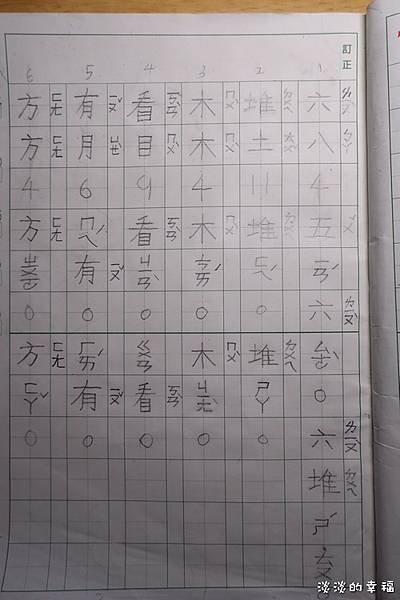 訂正
1 六ㄌㄧㄡˋ八ㄅㄚ4五ㄨˇㄧㄢˊ六ㄌㄧㄡˋ○六ㄌㄧㄡˋ堆ㄉㄨㄟㄕˊ
2 堆ㄉㄨㄟ土ㄊㄨˇ11堆ㄉㄨㄟㄈㄟ○堆ㄉㄨㄟㄕㄚ○
3 木ㄇㄨˋ木ㄇㄨˋ4木ㄇㄨˋ○木ㄇㄨˋ○
4 看ㄎㄢˋ目ㄇㄨˋ9看ㄎㄢˋㄐㄧㄢˋ○看ㄎㄢˋ○
5 有ㄧㄡˇ月ㄩㄝˋ6ㄇㄟˊ有ㄧㄡˇ○有ㄧㄡˇ○
6 方ㄈㄤ方ㄈㄤ4方ㄈㄤ○方ㄈㄤㄈㄚˇ○
淡淡的幸福